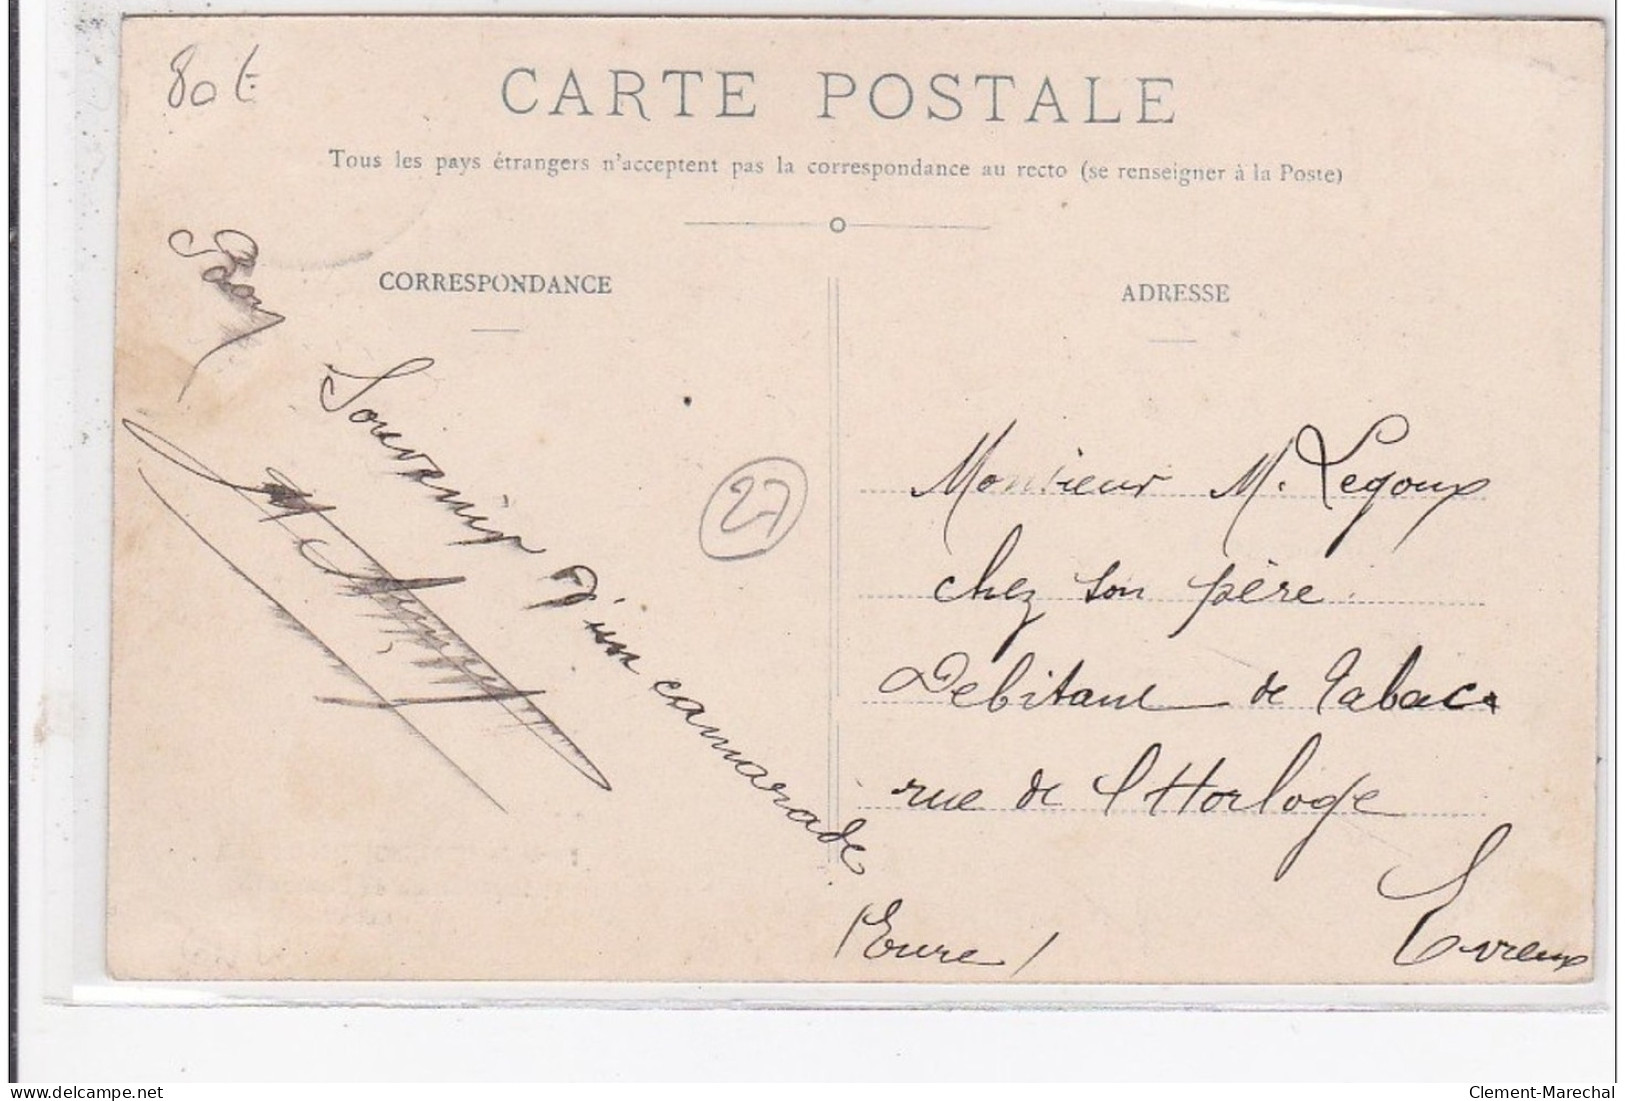 80 €
CARTE POSTALE
Tous les pays étrangers n'acceptent pas la correspondance au recto (se renseigner à la Poste)
CORRESPONDANCE
ADRESSE
Souvenir d'un camarade
27
Monsieur M. Legoux
chez son père
Debitant de Tabac
rue de l'Horloge
Evreux
(Eure)
delcampe.net
Clement-Marechal